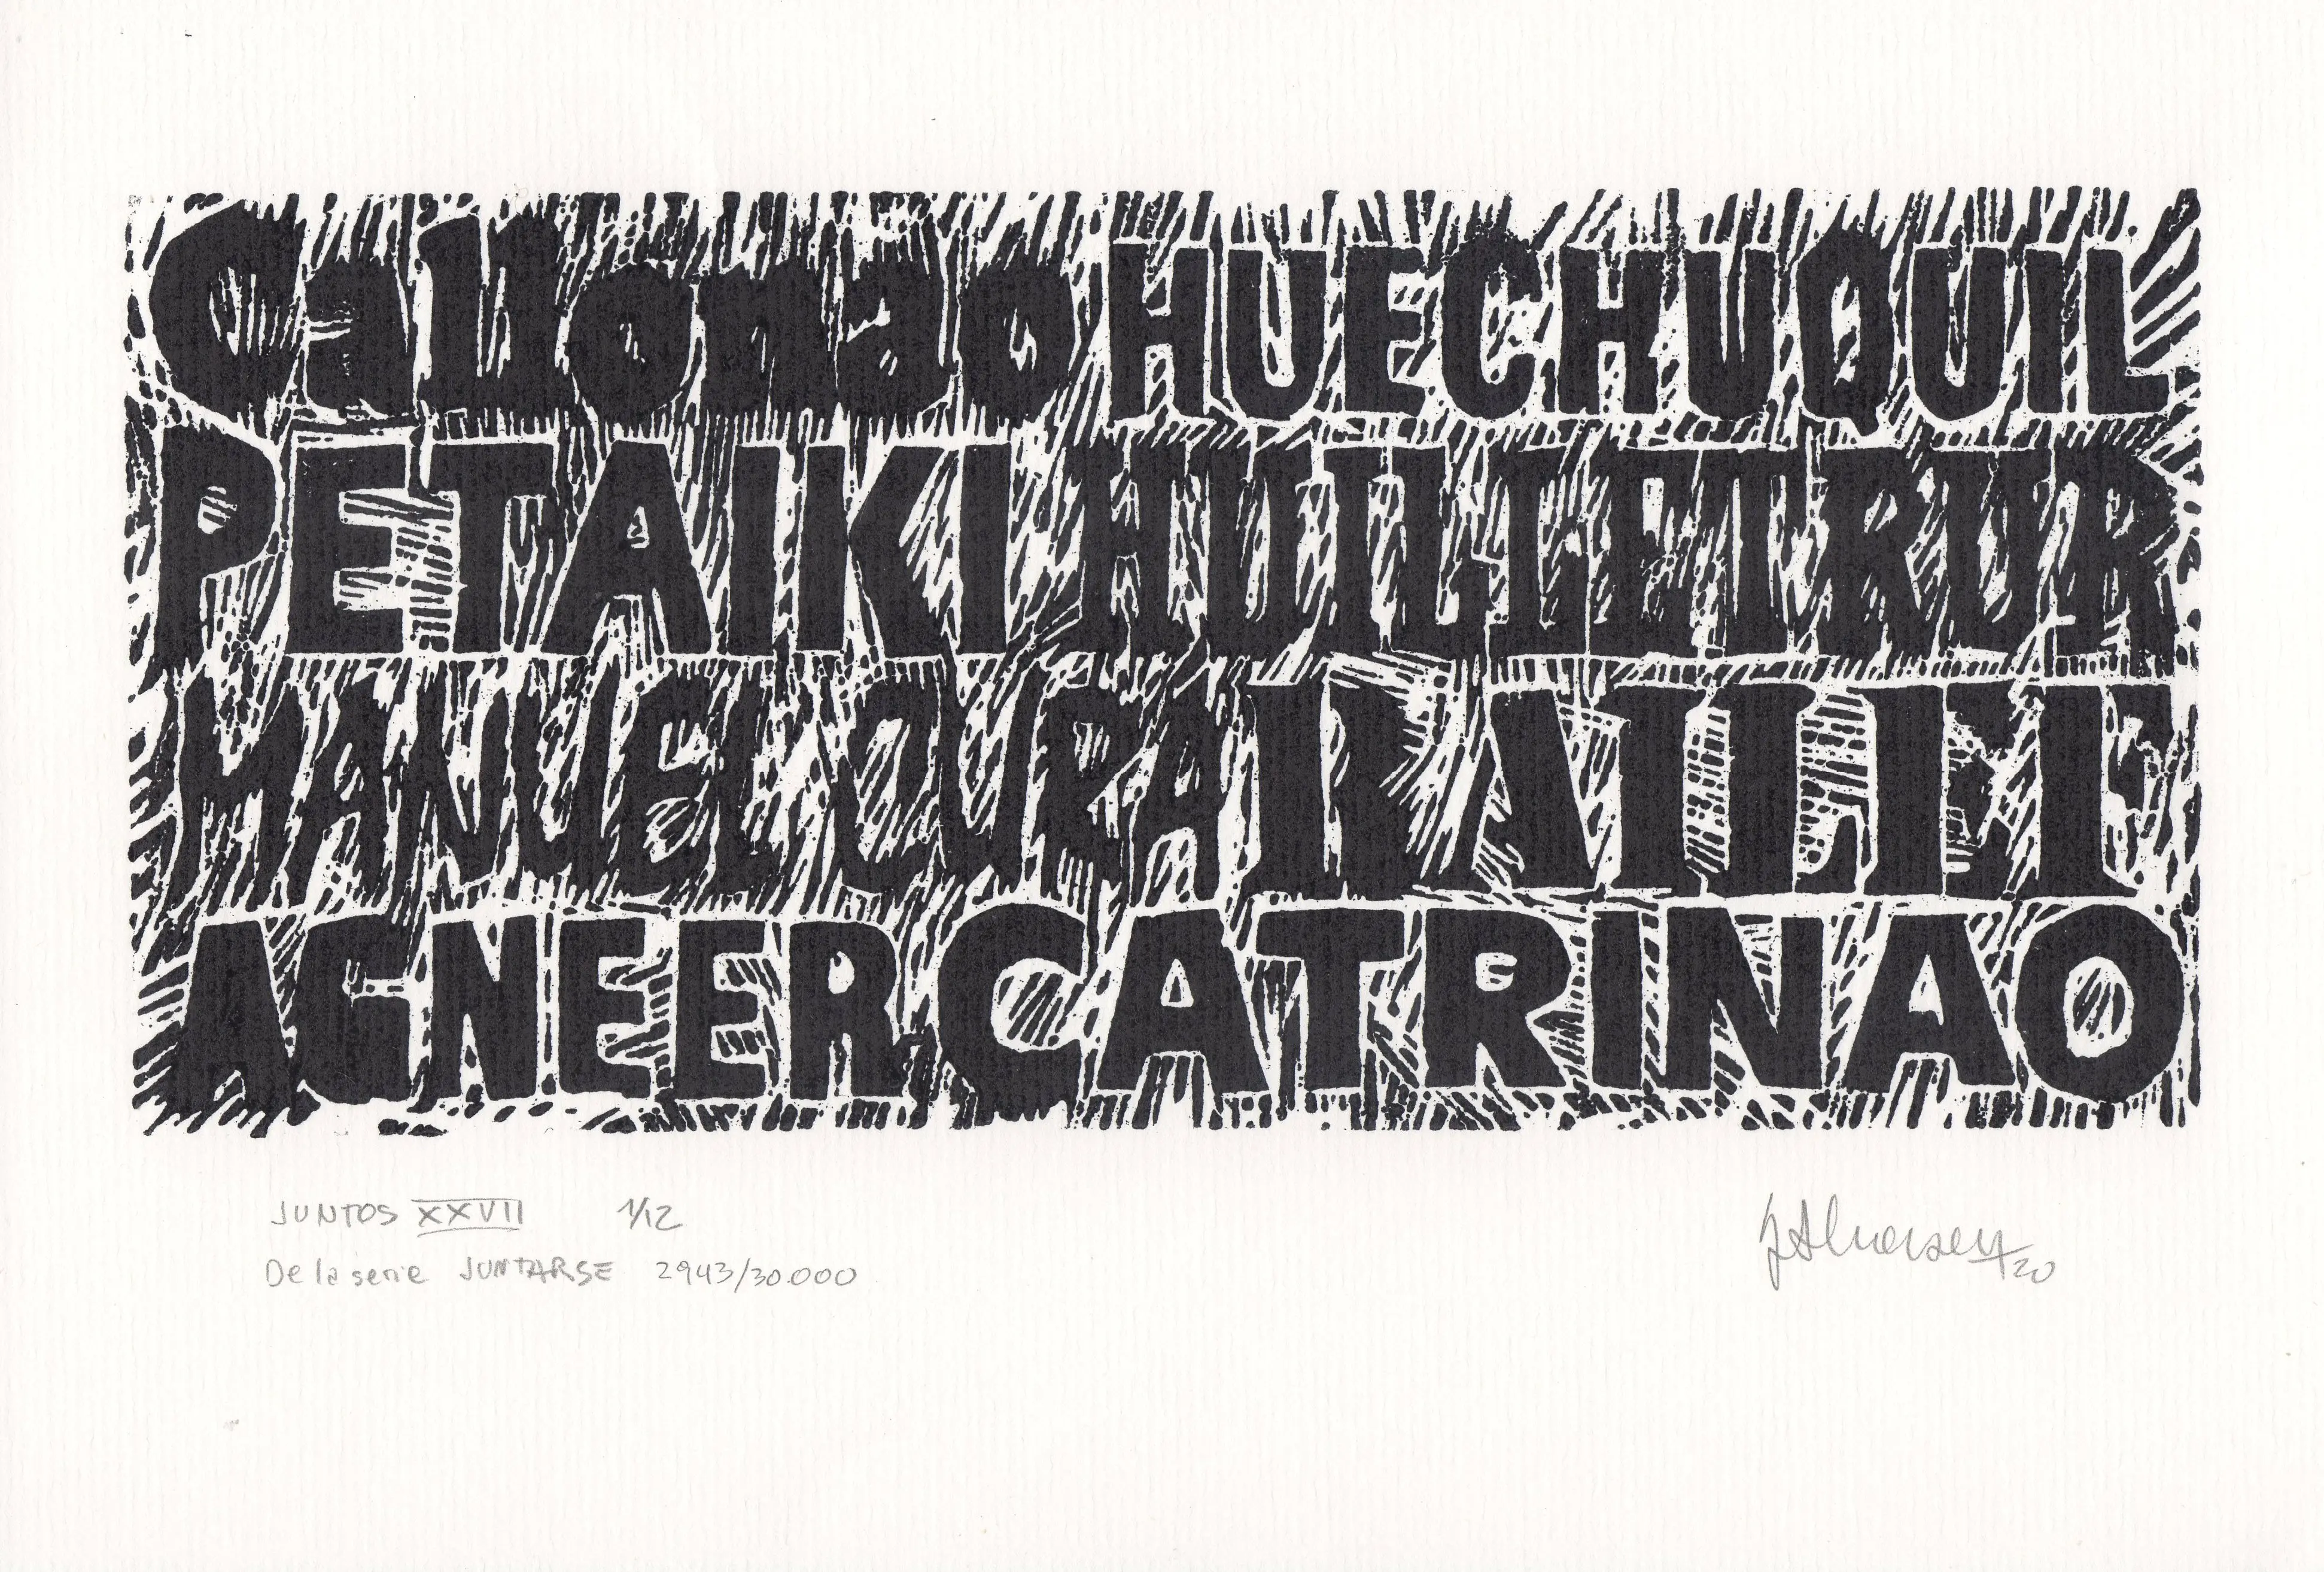 Callonao HUECHUQUIL
PETAIKI HUILLETRUR
MANUEL CURAL
AGNEER CATRINAO
JUNTOS XXVII 1/12
De la serie JUNTARSE 2943/30.000
20